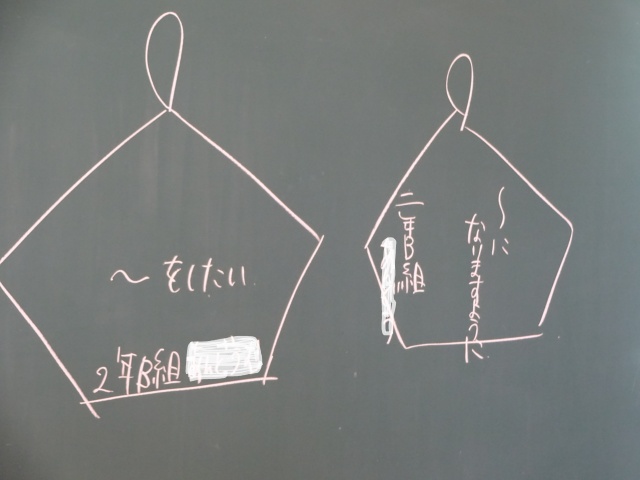 ～をしたい
2年B組
～に
なりますように
二年B組